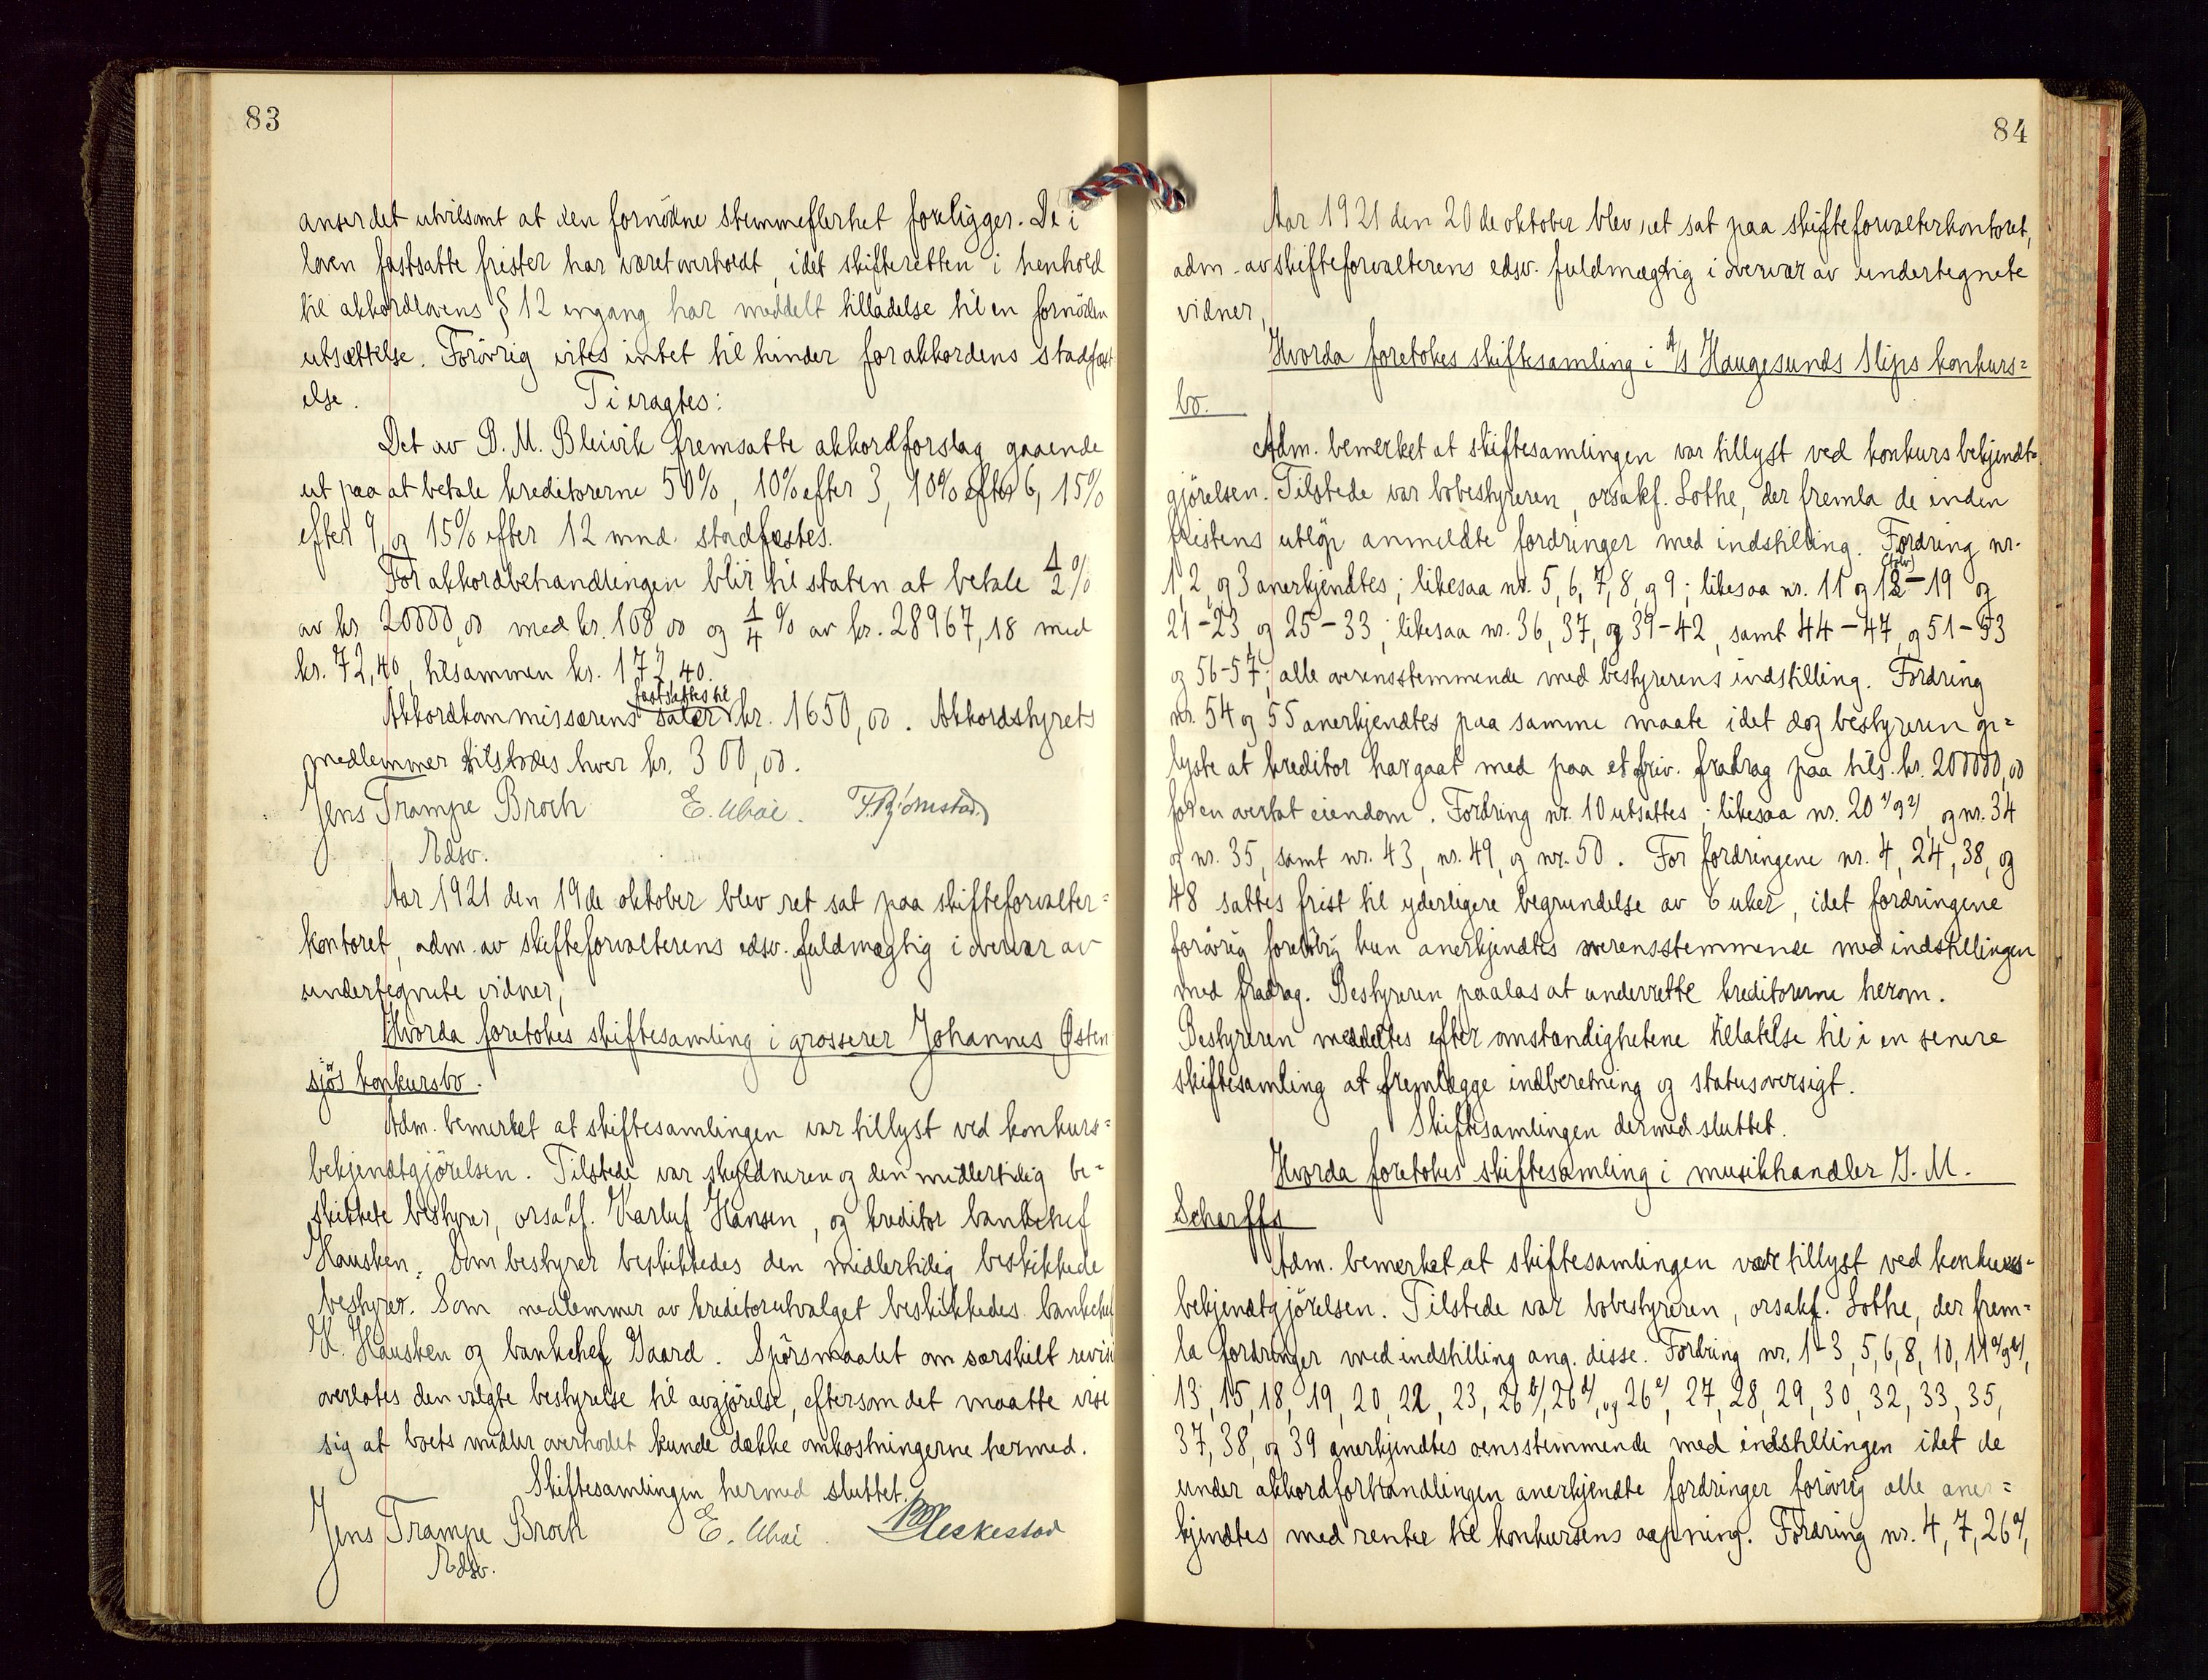 83
anser det utvilsomt at den fornödne stemmeflerhet foreligger. De i
loven fastsatte frister har været overholdt, idet skifteretten i henhold
til akkordlovens § 12 engang har meddelt tilladelse til en fornöden
utsættelse. Forövrig vites intet til hinder for akkordens stadfæst
else. Ti eragtes:
Det av B. M. Bleivik fremsatte akkordforslag gaaende
ut paa at betale kreditorerne 50%, 10% efter 3, 10% efter 6, 15%
efter 9 og 15% efter 12 mnd. stadfæstes.
For akkordbehandlingen blir til staten at betale 1/2 %
av kr 20000,00 med kr. 100 00 og 1/4 % av kr. 28967,18 med
kr. 72,40, tilsammen kr. 172,40.
fastsættes til
Akkordkommissærens salær kr. 1650,00. Akkordstyrets
medlemmer tilstodes hver kr. 300,00.
Jens Trampe Broch E. Ubøe. T. Bjørnstad
Edsv.
Aar 1921 den 19de oktober blev ret sat paa skifteforvalter=
kontoret, adm. av skifteforvalterens edsv. fuldmægtig i overvær av
undertegnete vidner,
Hvorda foretokes skiftesamling i grosserer Johannes Østen
sjös konkursbo.
Adm. bemerket at skiftesamlingen var tillyst ved konkurs=
bekjendtgjörelsen. Tilstede var skyldneren og den midlertidig be=
skikkete bestyrer, orsakf. Karluf Hansen, og kreditor bankchef
Hausken. Som bestyrer beskikkedes den midlertidig beskikkede
bestyrer. Som medlemmer av kreditorutvalget beskikkedes bankchef
K. Hausken og bankchef Gaard. Spörsmaalet om særskilt revisi
overlotes den valgte bestyrelse til avgjörelse, eftersom det maatte vise
sig at boets midler overhodet kunde dække omkostningerne hermed.
Skiftesamlingen hermed sluttet.
Jens Trampe Broch E. Ubøe Meskestad
Edsv.
84
Aar 1921 den 20de oktober blev ret sat paa skifteforvalterkontoret,
adm. av skifteforvalterens edsv. fuldmægtig i overvær av undertegnete
vidner,
Hvorda foretokes skiftesamling i A/S Haugesunds Slips konkurs=
bo.
Adm. bemerket at skiftesamlingen var tillyst ved konkursbekjendt=
gjörelsen. Tilstede var bobestyreren, orsakf. Lothe, der fremla de inden
fristens utlöp anmeldte fordringer med indstilling. Fordring nr.
(tolv)
1, 2, og 3 anerkjendtes; likesaa nr. 5, 6, 7, 8, og 9; likesaa nr. 11 og 12-19 og
21-23 og 25-33; likesaa nr. 36, 37, og 39-42, samt 44-47, og 51-53
og 56-57; alle overensstemmende med bestyrerens indstilling. Fordring
nr. 54 og 55 anerkjendtes paa samme maate idet dog bestyreren op=
lyste at kreditor har gaat med paa et friv. fradrag paa tils. kr. 200000,00
for en overtat eiendom. Fordring nr. 10 utsattes; likesaa nr. 20 1/ og 2/, og nr. 34
og nr. 35, samt nr. 43, nr. 49, og nr. 50. For fordringene nr. 4, 24, 38, og
48 sattes frist til yderligere begrundelse av 6 uker, idet fordringene
forövrig foreløbig kun anerkjendtes overensstemmende med indstillingen
med fradrag. Bestyreren paalas at underrette kreditorerne herom.
Bestyreren meddeltes efter omstændighetene tillatelse til i en senere
skiftesamling at fremlægge indberetning og statusoversigt.
Skiftesamlingen dermed sluttet.
Hvorda foretokes skiftesamling i musikhandler J. M.
Scharffs
Adm. bemerket at skiftesamlingen var tillyst ved konkurs=
bekjendtgjörelsen. Tilstede var bobestyreren, orsakf. Lothe, der frem=
la fordringer med indstilling ang. disse. Fordring nr. 1-3, 5, 6, 8, 10, 11 a/ og b/,
13, 15, 18, 19, 20, 22, 23, 26 b/, 26 d/, og 26 e/, 27, 28, 29, 30, 32, 33, 35,
37, 38, og 39 anerkjendtes oensstemmende med indstillingen idet de
under akkordforhandlingen anerkjendte fordringer forövrig alle aner=
kjendtes med renter til konkursens aapning. Fordring nr. 4, 7, 26 a/,